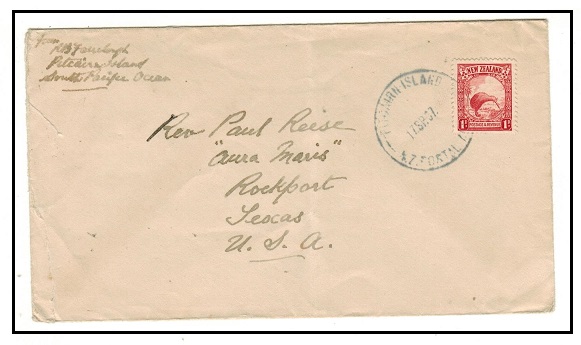 From
Pitcairn Island
South Pacific Ocean
NEW ZEALAND
1D
POSTAGE & REVENUE
1D
PITCAIRN ISLAND
17 SP 37
N.Z. POSTAL
Rev Paul Reise
"Aura Maris"
Rockport
Texas
U. S. A.